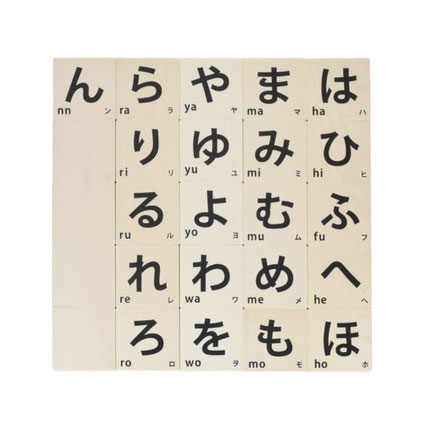 ん ら や ま は
nn ン ra ラ ya ヤ ma マ ha ハ
り ゆ み ひ
ri リ yu ユ mi ミ hi ヒ
る よ む ふ
ru ル yo ヨ mu ム fu フ
れ わ め へ
re レ wa ワ me メ he ヘ
ろ を も ほ
ro ロ wo ヲ mo モ ho ホ